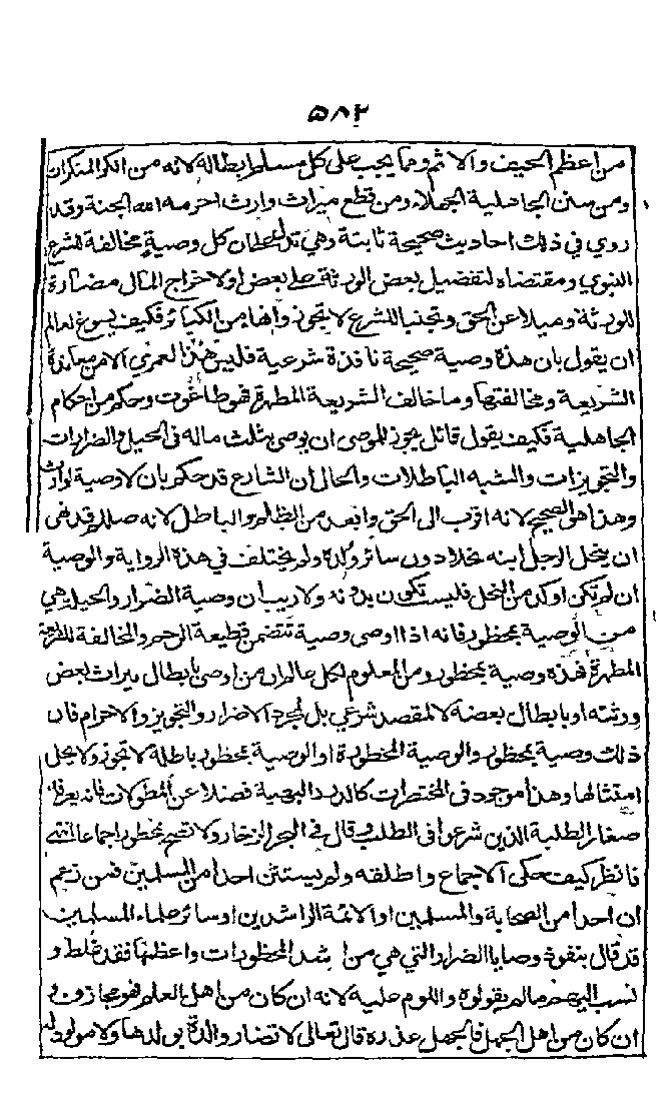 ٥٨٢
من اعظم الحيف والاثم ومما يجب على كل مسلم ابطاله لانه من انكر المنكرات
ومن سنن الجاهلية الجهلاء ومن قطع ميراث وارث احرمه الله الجنة وقد
روي في ذلك احاديث صحيحة ثابتة وهي تدل على ان كل وصية مخالفة للشرع
النبوي ومقتضاه لتفضيل بعض الورثة على بعض او لاخراج المال مضارة
للورثة وميلا عن الحق وتجنبا للشرع لا يتجوز وانها من الكبائر فكيف يسوغ لعالم
ان يقول بان هذه وصية صحيحة نافذة شرعية فليس هذا لعمري الا من معاندة
الشريعة ومخالفتها وما خالف الشريعة المطهرة فهو طاغوت وحكم من احكام
الجاهلية فكيف يقول قائل يجوز للموصي ان يوصي بثلث ماله في الحيل والضرارات
والتجويزات والشبه الباطلات والحال ان الشارع قد حكم بان لا وصية لوارث
وهذا هو الصحيح لانه اقرب الى الحق وابعد من الظلم والباطل لانه صللم قد نهى
ان ينحل الرجل ابنه نحلا دون سائر ولده ولم يختلف في هذه الرواية والوصية
ان لم تكن اوكد من النحل فليست تكون بدونه ولا ريب ان وصية الضرار والحيلة هي
من الوصية بمحظور فانه اذا اوصى وصية تتضمن قطيعة الرحم والمخالفة للشريعة
المطهرة فهذه وصية بمحظور ومن المعلوم لكل عالم ان من اوصى بابطال ميراث بعض
ورثته او بابطال بعضه لا لمقصد شرعي بل لمجرد الاضرار والتجويز والاحرام فان
ذلك وصية بمحظور والوصية المحظورة او الوصية بمحظور باطلة لا تجوز ولا يحل
امتثالها وهذا موجود في المختصرات كالدرر البهية فضلا عن المطولات فانه يعرفه
صغار الطلبة الذين شرعوا في الطلب وقال في البحر الزخار ولا تصح بمحظور اجماعا انتهى
فانظر كيف حكى الاجماع واطلقه ولم يستثن احدا من المسلمين فمن زعم
ان احدا من الصحابة والمسلمين او الائمة الراشدين او سائر علماء المسلمين
قد قال بنفوذ وصايا الضرار التي هي من اشد المحظورات واعظمها فقد غلط و
نسب اليهم ما لم يقولوه واللوم عليه لانه ان كان من اهل العلم فهو مجازف و
ان كان من اهل الجهل فالجهل عذره قال تعالى لا تضار والدة بولدها ولا مولود له